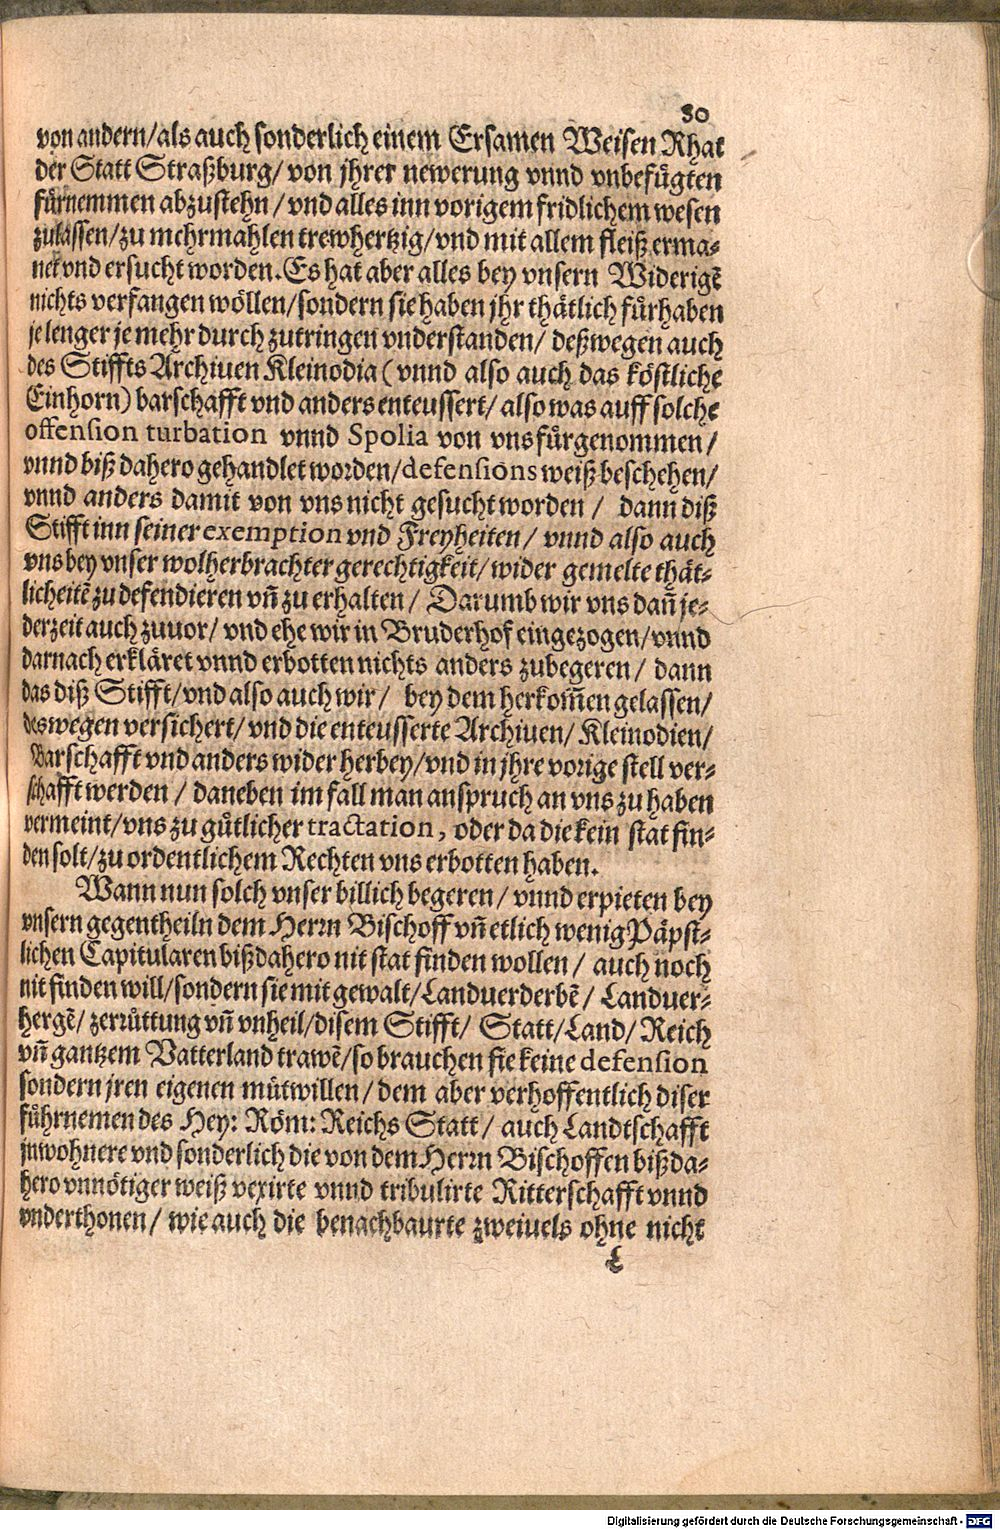 80
von andern/als auch sonderlich einem Ersamen Weisen Rhat
der Statt Straßburg/ von jhrer newerung vnnd vnbefügten
fürnemmen abzustehn/ vnd alles inn vorigem fridlichem wesen
zulassen/zu mehrmahlen trewhertzig/vnd mit allem fleiß erma-
net vnd ersucht worden. Es hat aber alles bey vnsern Widerigẽ
nichts verfangen wöllen/sondern sie haben jhr thätlich fürhaben
je lenger je mehr durch zutringen vnderstanden/ deßwegen auch
des Stiffts Archiuen Kleinodia (vnnd also auch das köstliche
Einhorn) barschafft vnd anders enteussert/ also was auff solche
offension turbation vnnd Spolia von vns fürgenommen/
vnnd biß dahero gehandlet worden/defensions weiß beschehen/
vnnd anders damit von vns nicht gesucht worden/ dann diß
Stifft inn seiner exemption vnd Freyheiten/ vnnd also auch
vns bey vnser wolherbrachter gerechtigkeit/ wider gemelte thät-
licheitẽ zu defendieren vñ zu erhalten/ Darumb wir vns dañ je-
derzeit auch zuuor/ vnd ehe wir in Bruderhof eingezogen/vnnd
darnach erkläret vnnd erbotten nichts anders zubegeren/ dann
das diß Stifft/vnd also auch wir/ bey dem herkom̃en gelassen/
deswegen versichert/ vnd die enteusserte Archiuen/ Kleinodien/
Barschafft vnd anders wider herbey/vnd in jhre vorige stell ver-
schafft werden/ daneben im fall man anspruch an vns zu haben
vermeint/vns zu gütlicher tractation, oder da die kein stat fin-
den solt/zu ordentlichem Rechten vns erbotten haben.
Wann nun solch vnser billich begeren/ vnnd erpieten bey
vnsern gegentheiln dem Herrn Bischoff vñ etlich wenig Päpst-
lichen Capitularen biß dahero nit stat finden wollen/ auch noch
nit finden will/sondern sie mit gewalt/Landuerderbẽ/ Landuer-
hergẽ/ zerrüttung vñ vnheil/disem Stifft/ Statt/Land/ Reich
vñ gantzem Vatterland trawẽ/so brauchen sie keine defension
sondern jren eigenen mütwillen/ dem aber verhoffentlich diser
führnemen des Hey: Röm: Reichs Statt/ auch Landtschafft
jnwohnere vnd sonderlich die von dem Herrn Bischoffen biß da-
hero vnnötiger weiß vexirte vnnd tribulirte Ritterschafft vnnd
vnderthonen/ wie auch die benachbaurte zweiuels ohne nicht
L
Digitalisierung gefördert durch die Deutsche Forschungsgemeinschaft - DFG